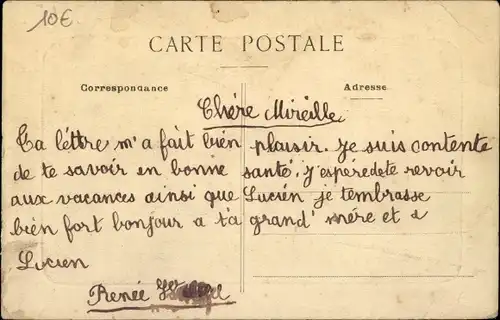 10€
CARTE POSTALE
Correspondance
Adresse
Chére Mireille
Ta léttre m'a fait bien plaisir. Je suis contente
de te savoir en bonne santé. j'espéredete revoir
aux vacances ainsi que Lucién je tembrasse
bién fort bonjour a ta grand' mére et a
Lucien
Renée